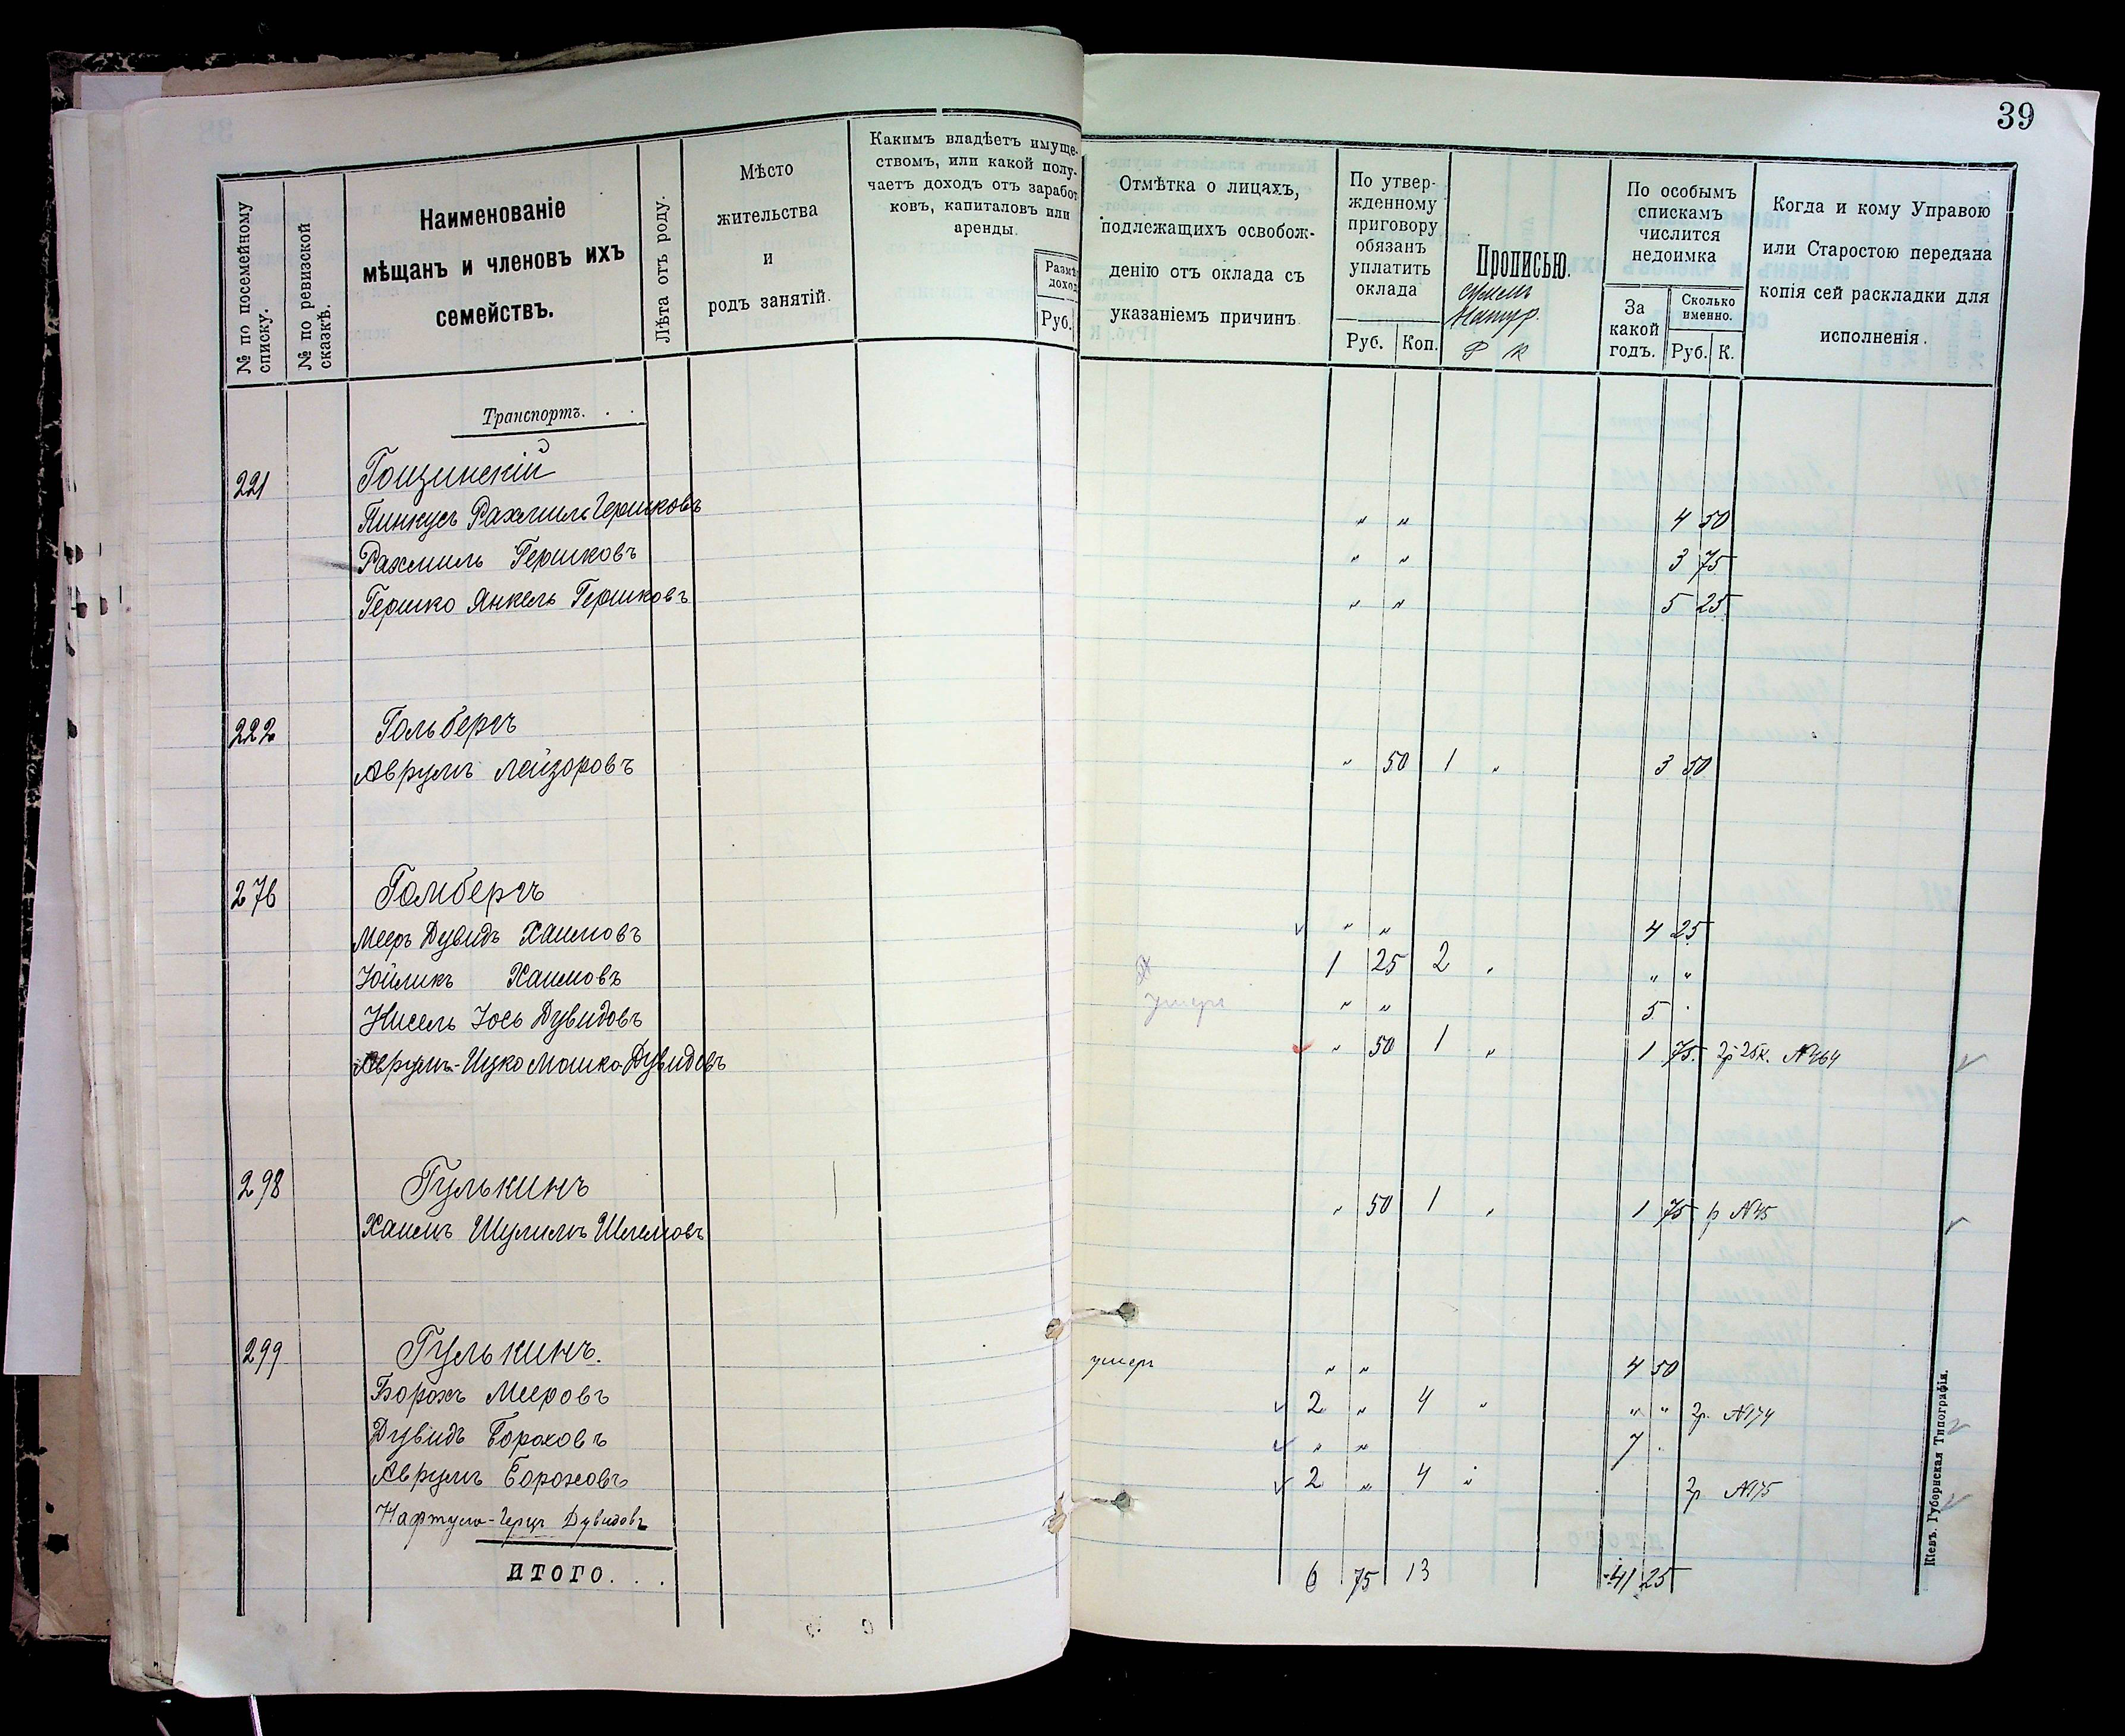 39
№ по посемейному списку.
№ по ревизской сказкѣ.
Наименованіе
мѣщанъ и членовъ ихъ
семействъ.
Лѣта отъ роду.
Мѣсто
жительства
и
родъ занятій.
Какимъ владѣетъ имуще-
ствомъ, или какой полу-
чаетъ доходъ отъ заработ
ковъ, капиталовъ или
аренды.
Размѣ
доход
Руб.
Отмѣтка о лицахъ,
подлежащихъ освобож-
денію отъ оклада съ
указаніемъ причинъ
По утвер-
жденному
приговору
обязанъ
уплатить
оклада
Руб. Коп.
Прописью.
Р К
По особымъ
спискамъ
числится
недоимка
За
какой
годъ.
Сколько
именно.
Руб. К.
Когда и кому Управою
или Старостою передана
копія сей раскладки для
исполненія.
Транспортъ. . .
221 Гощинскій
Пинкусъ Рахмиль Гершковъ " " 4 50
Рахмиль Гершковъ " " 3 75
Гершко Янкель Гершковъ " " 5 25
222 Гольбергъ
Аврумъ Лейзоровъ " 50 1 " 3 50
276 Гомбергъ
Мееръ Дувидъ Хаимовъ " " 4 25
Юйликъ Хаимовъ 1 25 2 " " "
Кисель Іось Дувидовъ умеръ " " 5 "
Аврумъ-Ицко Мошко Дувидовъ " 50 1 " 1 75 2р 25к. №464
298 Гулькинъ
Хаимъ Шулимъ Шлемовъ " 50 1 " 1 75 р №45
299 Гулькинъ.
Борохъ Мееровъ умеръ " " 4 50
Дувидъ Бороховъ 2 " 4 " " " 2р. №174
Аврумъ Бороховъ " " 7 "
Нафтула-Герцъ Дувидовъ 2 " 4 " 2р №175
ИТОГО. . . 6 75 13 41 25
Кіевъ. Губернская Типографія.